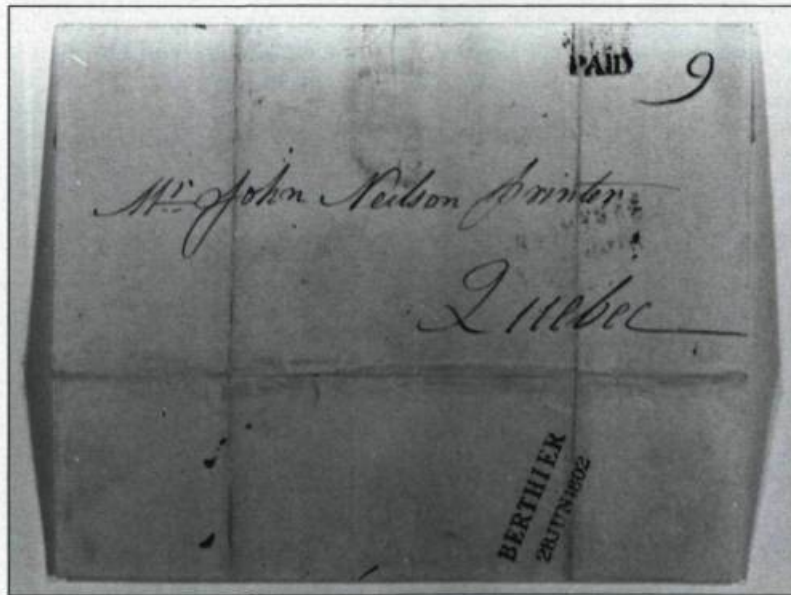 PAID 9
Mr. John Neilson Printer
Quebec
BERTHIER
28 JUN 1802